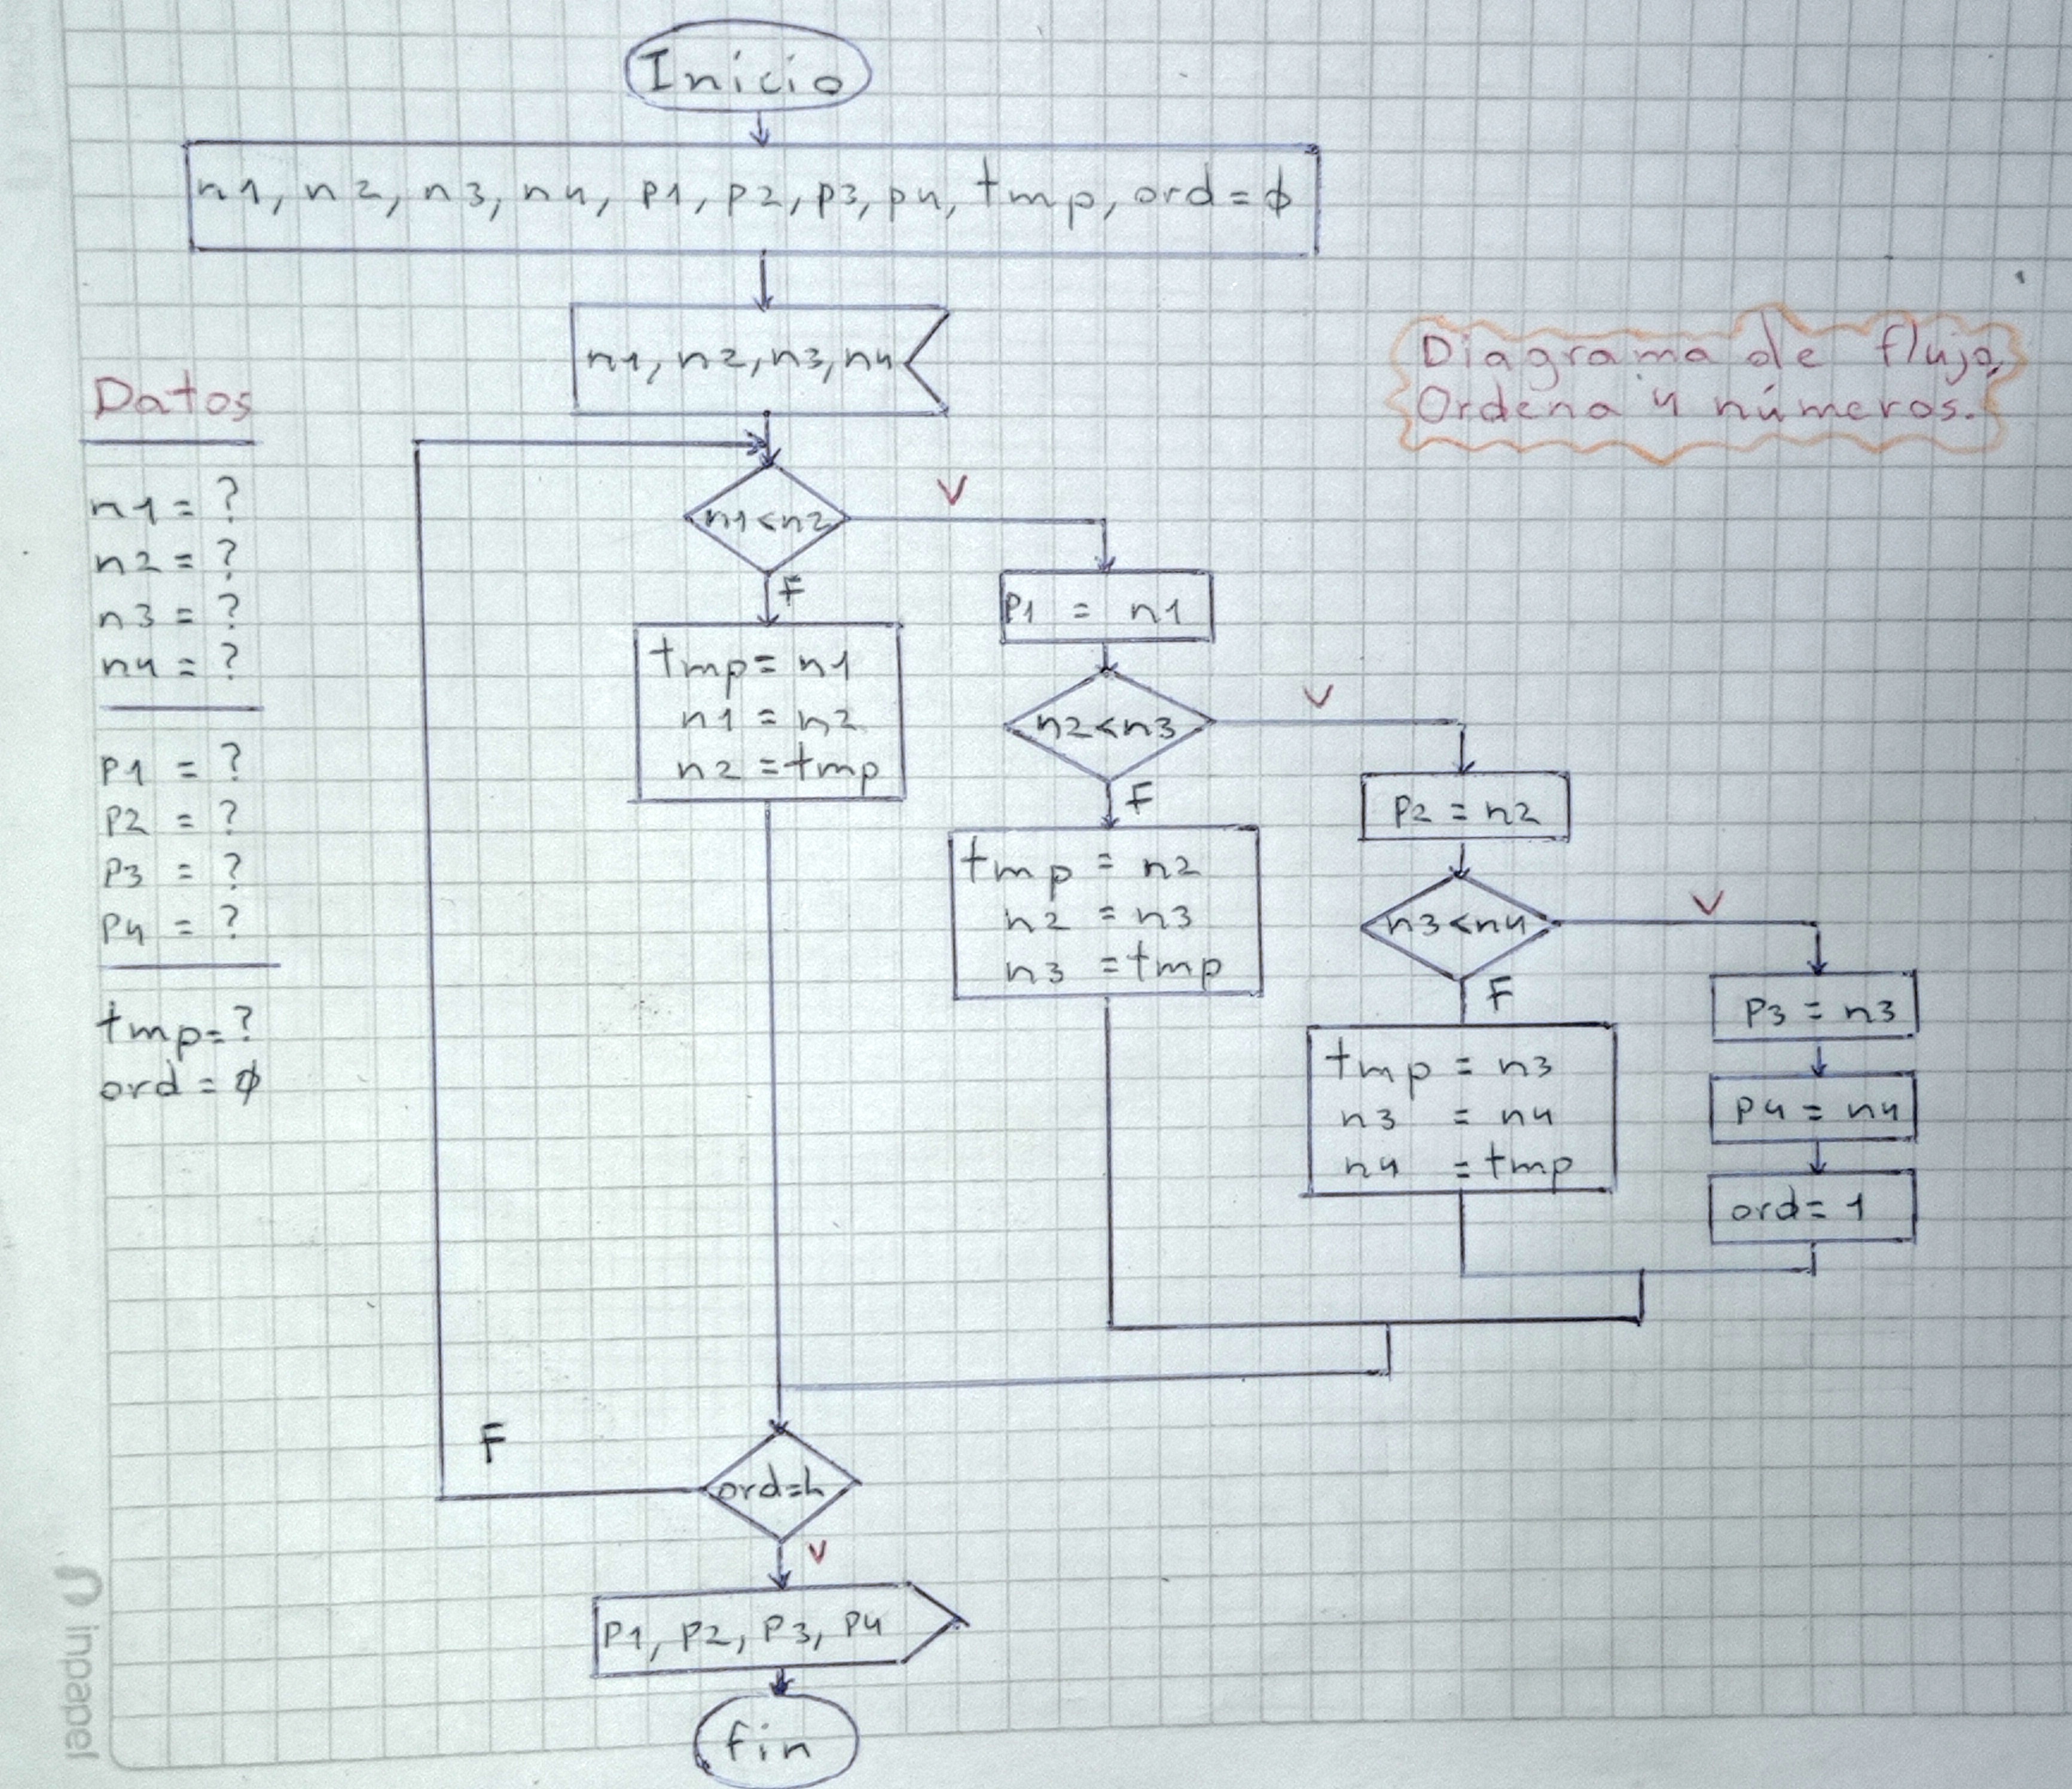 Inicio
n1, n2, n3, n4, p1, p2, p3, p4, tmp, ord = ϕ
n1, n2, n3, n4
Diagrama de flujo,
Ordena 4 números.
Datos
n1 = ?
n2 = ?
n3 = ?
n4 = ?
P1 = ?
P2 = ?
P3 = ?
P4 = ?
tmp = ?
ord = ϕ
n1 < n2
V
F
tmp = n1
n1 = n2
n2 = tmp
P1 = n1
n2 < n3
V
F
tmp = n2
n2 = n3
n3 = tmp
P2 = n2
n3 < n4
V
F
tmp = n3
n3 = n4
n4 = tmp
P3 = n3
P4 = n4
ord = 1
F
ord =
V
P1, P2, P3, P4
fin
inpapel